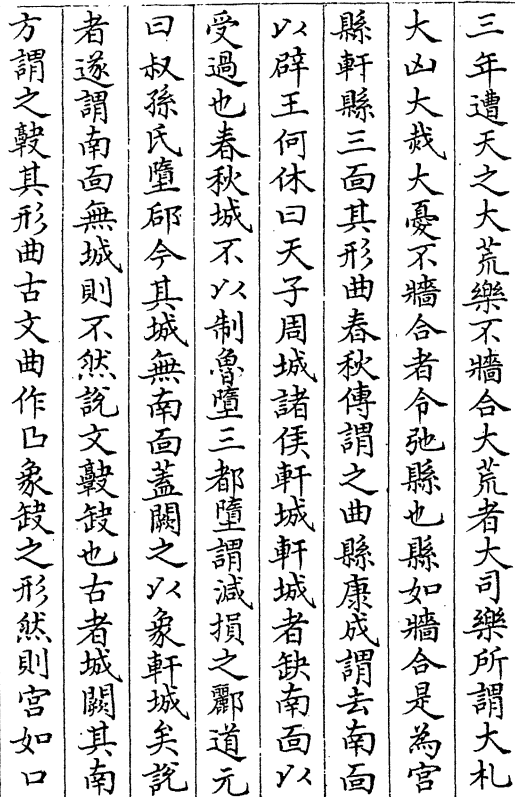 三年遭天之大荒樂不牆合大荒者大司樂所謂大札
大凶大烖大憂不牆合者令弛縣也縣如牆合是為宮
縣軒縣三面其形曲春秋傳謂之曲縣康成謂去南面
以辟王何休曰天子周城諸侯軒城軒城者缺南面以
受過也春秋城不以制魯墮三都墮謂減損之酈道元
曰叔孫氏墮郈今其城無南面蓋闕之以象軒城矣說
者遂謂南面無城則不然說文𩫏缺也古者城闕其南
方謂之𩫏其形曲古文曲作凵象缺之形然則宮如口